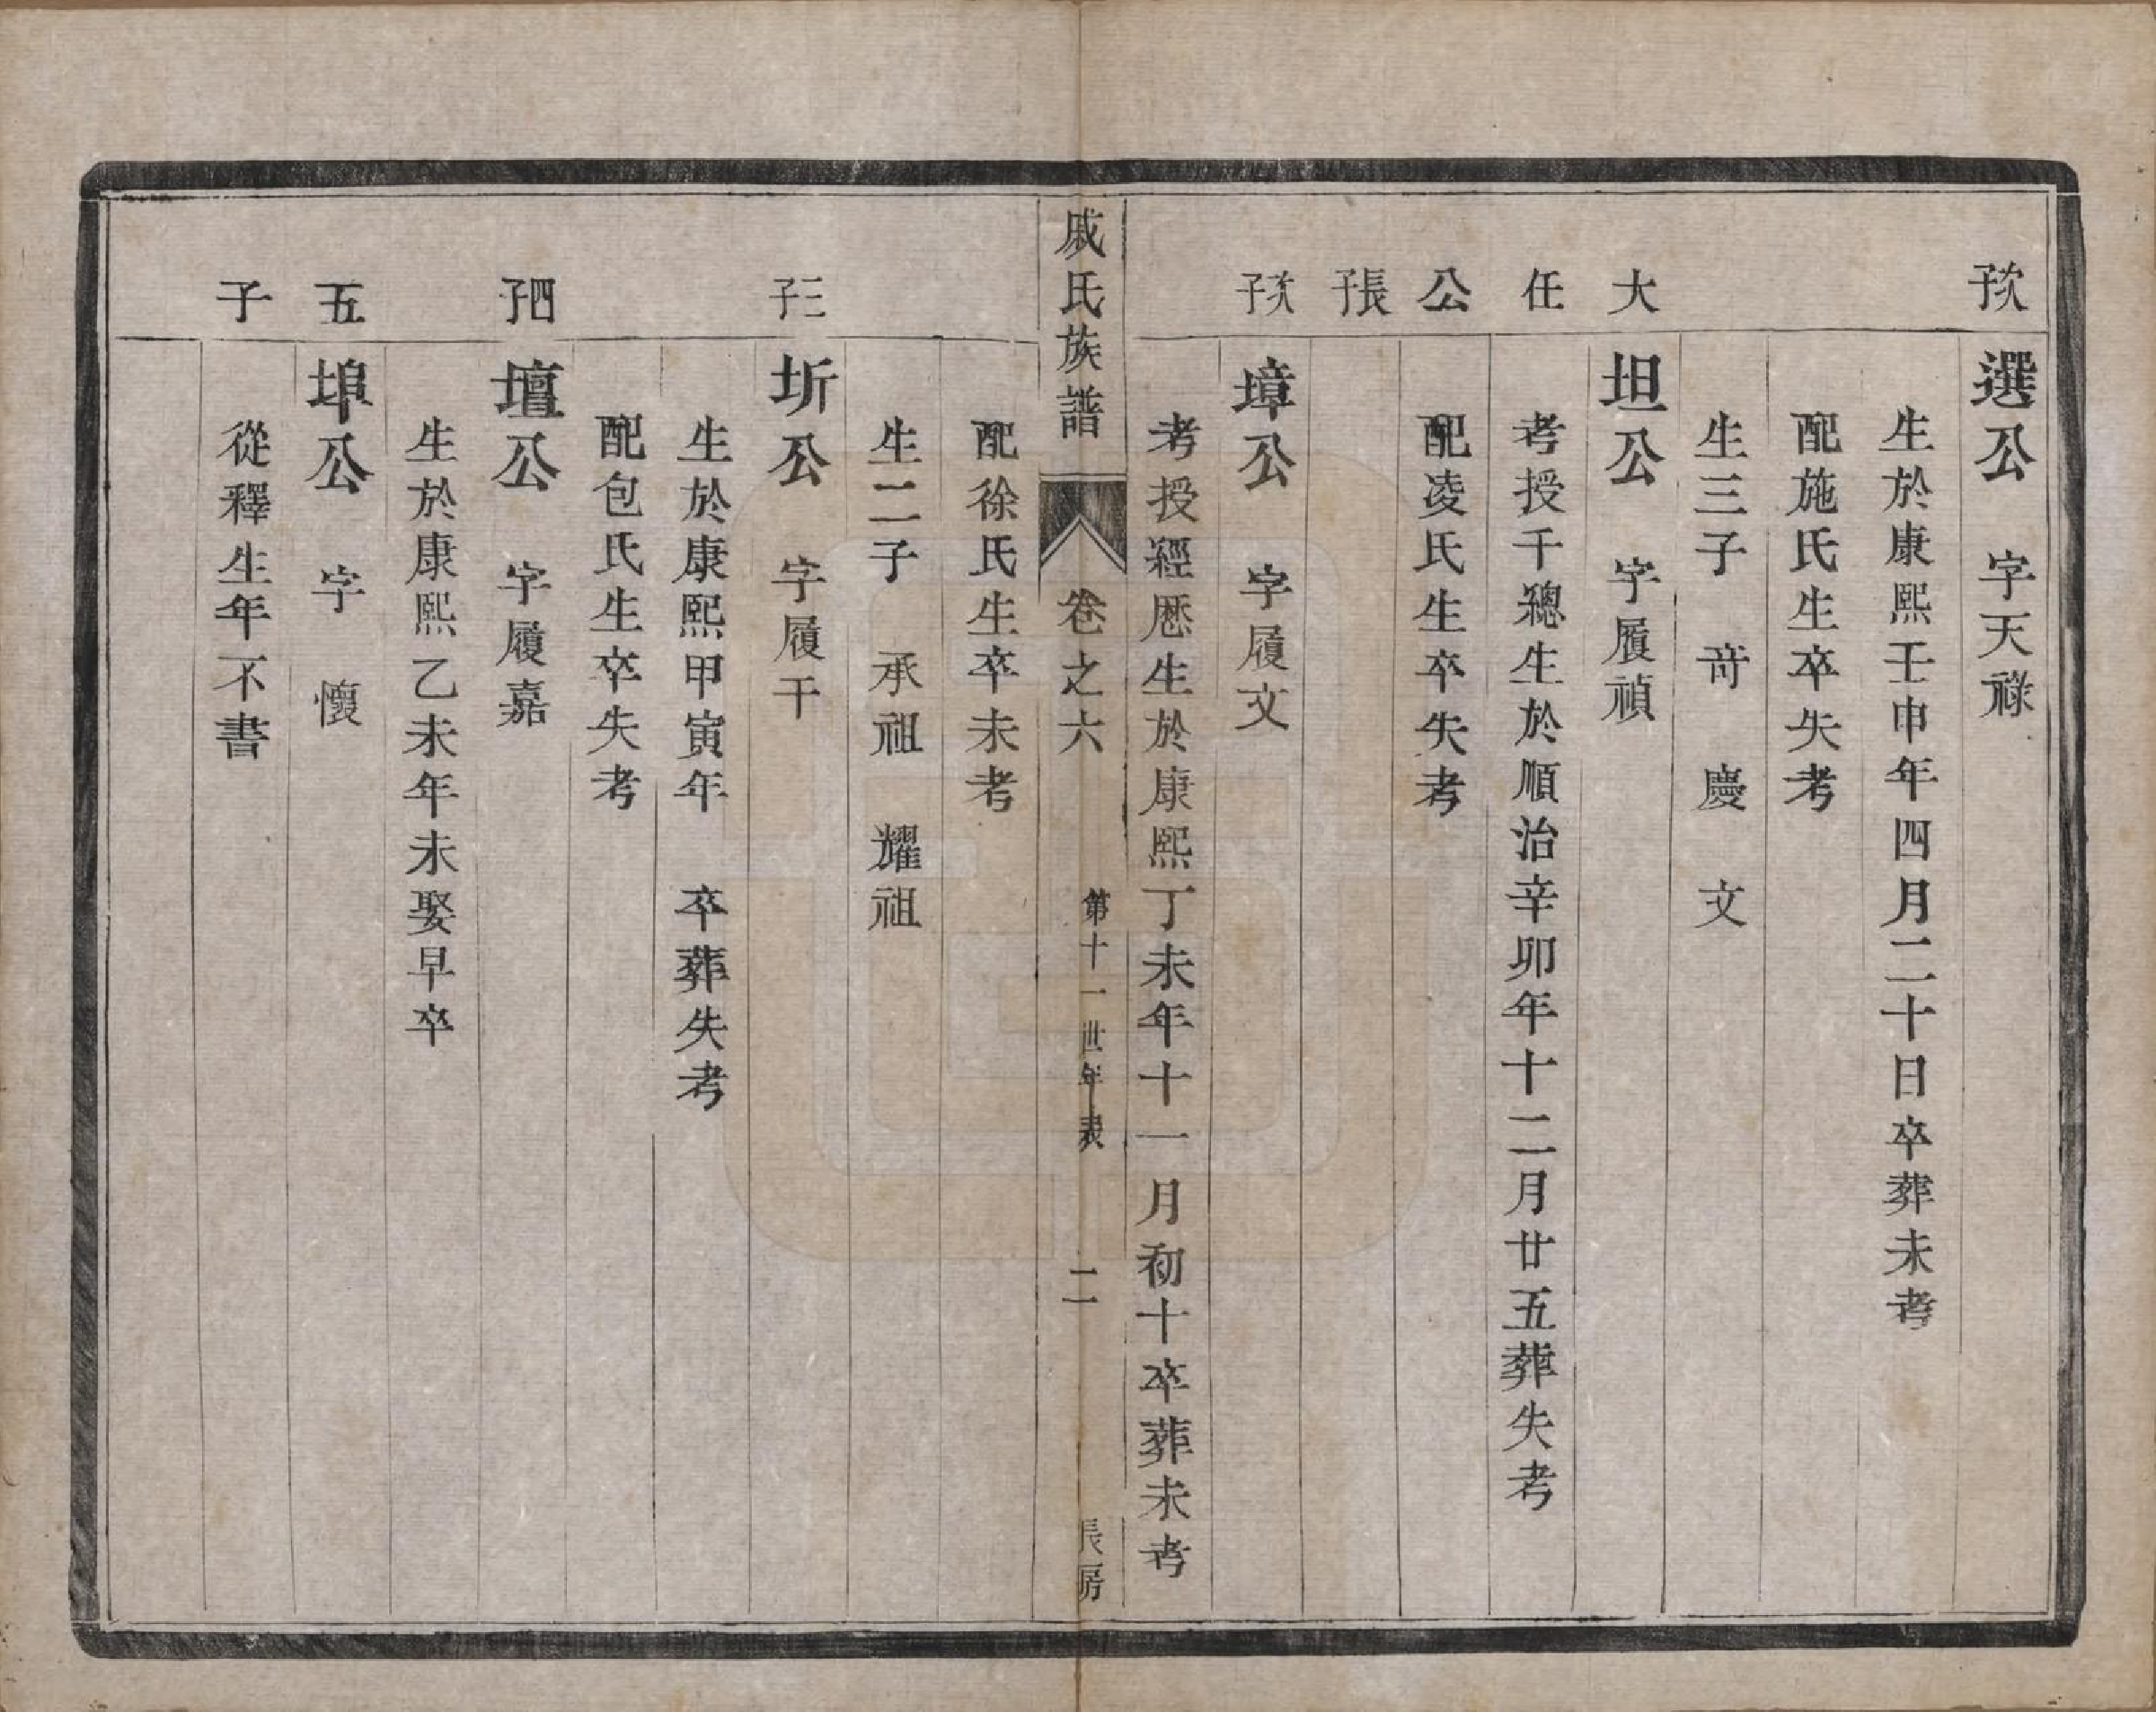 次子
選公　字天祿
生於康熙壬申年四月二十日卒葬未考
配施氏生卒失考
生三子　竒　慶　文
大任公張子
坦公　字履禎
考授千總生於順治辛卯年十二月廿五葬失考
配凌氏生卒失考
次子
墇公　字履文
考授經歷生於康熙丁未年十一月初十卒葬未考
戚氏族譜　卷之六　第十一世年表　二　長房
配徐氏生卒未考
生二子　承祖　耀祖
三子
圻公　字履干
生於康熙甲寅年　卒葬失考
配包氏生卒失考
四子
壇公　字履嘉
生於康熙乙未年未娶早卒
五子
埠公　字　懷
從釋生年不書